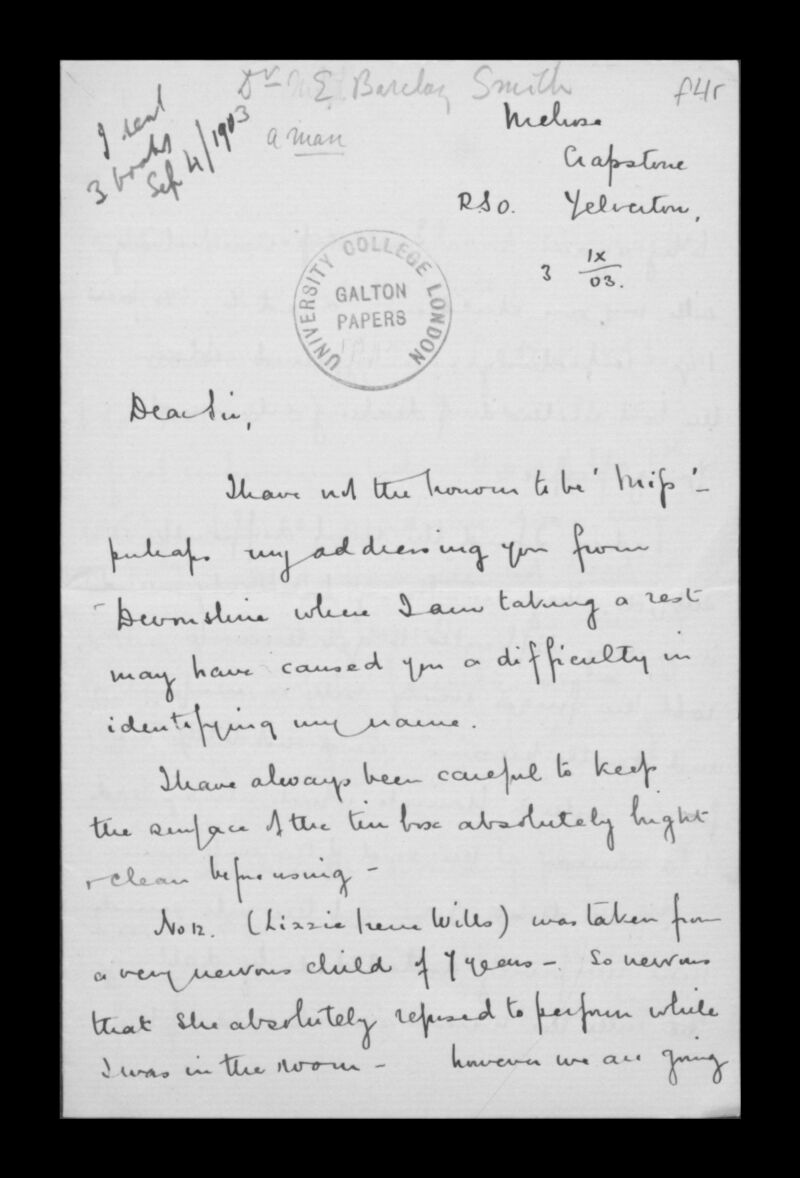 Dr E. Barclay Smith
f4r
a man
I sent
3 books
Sep 4/1903
Melrose
Crapstone
R.S.O. Yelverton,
3 IX/03.
UNIVERSITY COLLEGE LONDON
GALTON
PAPERS
Dear Sir,
I have not the honour to be 'Miss' –
perhaps my addressing you from
Devonshire where I am taking a rest
may have caused you a difficulty in
identifying my name.
I have always been careful to keep
the surface of the tin box absolutely bright
+ clean before using –
No 12. (Lizzie Irene Wills) was taken from
a very nervous child of 7 years – So nervous
that she absolutely refused to perform while
I was in the room – however we are going